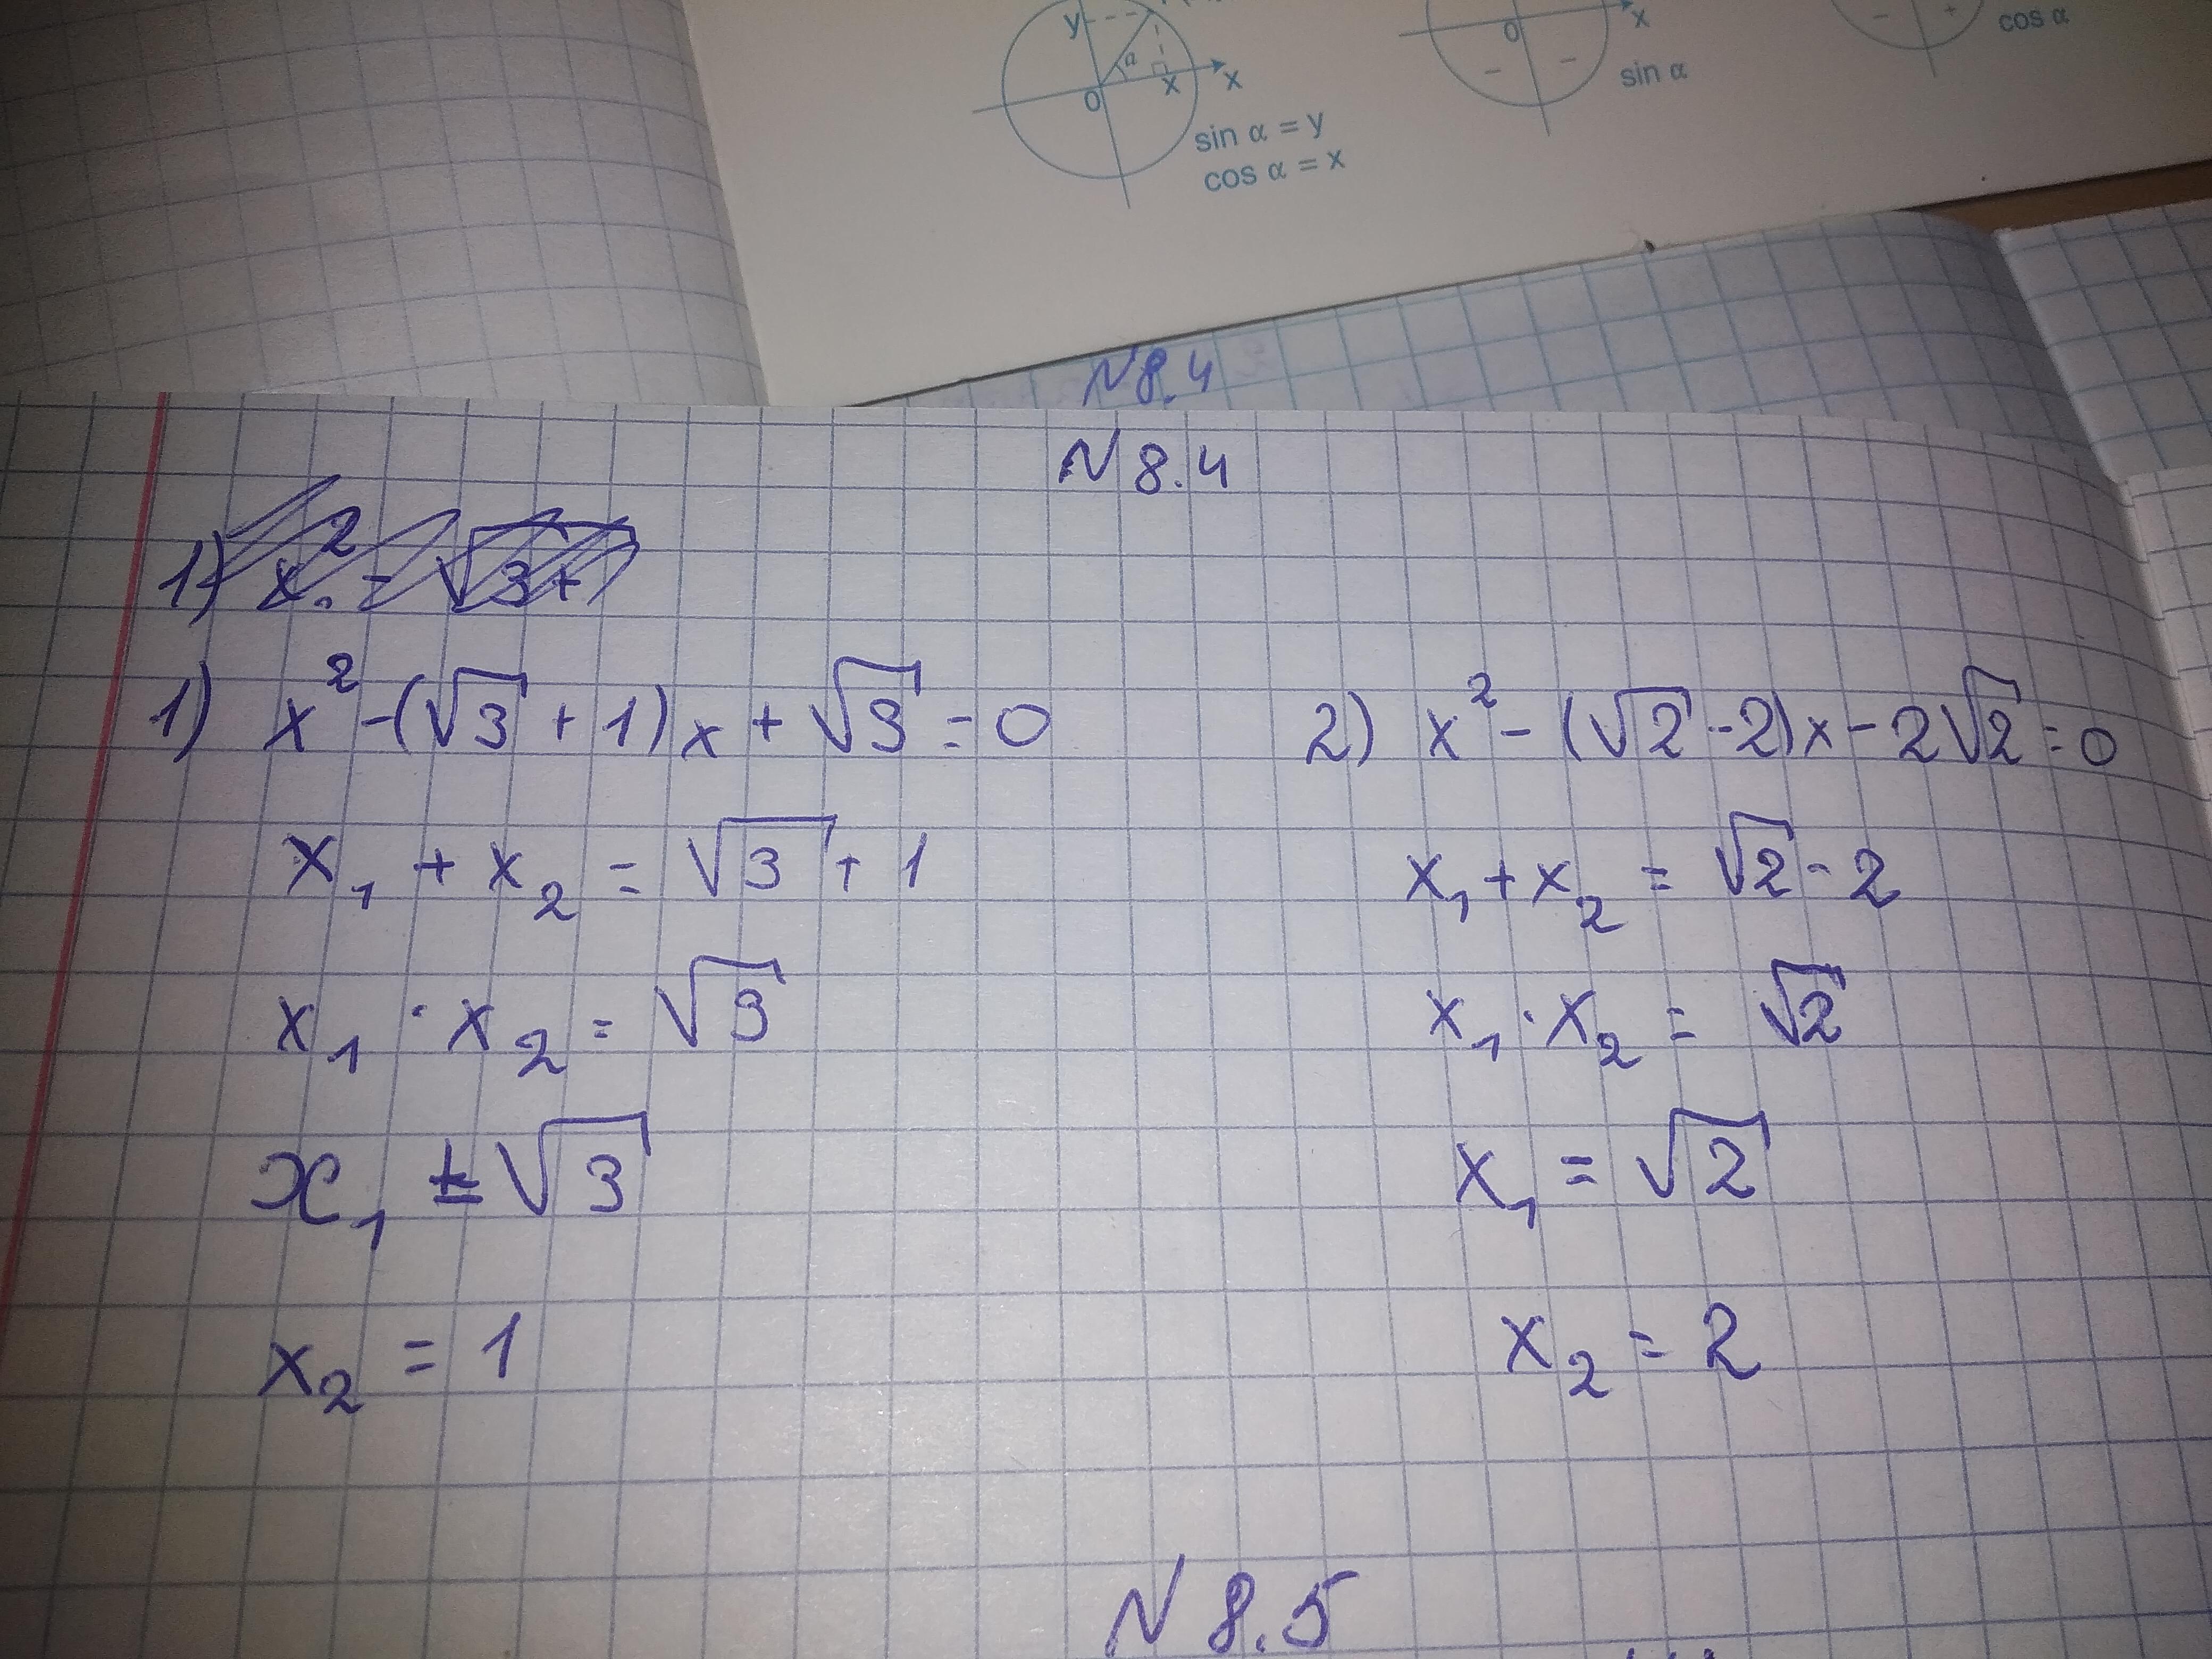 y
α
0
x
x
sin α = y
cos α = x
0
x
−
−
sin α
−
+
cos α
N8.4
N 8.4
1) x² - √3+1
1) x² - (√3 + 1)x + √3 = 0
x₁ + x₂ = √3 + 1
x₁ · x₂ = √3
x₁ = √3
x₂ = 1
2) x² - (√2 - 2)x - 2√2 = 0
x₁ + x₂ = √2 - 2
x₁ · x₂ = √2
x₁ = √2
x₂ = 2
N 8.5